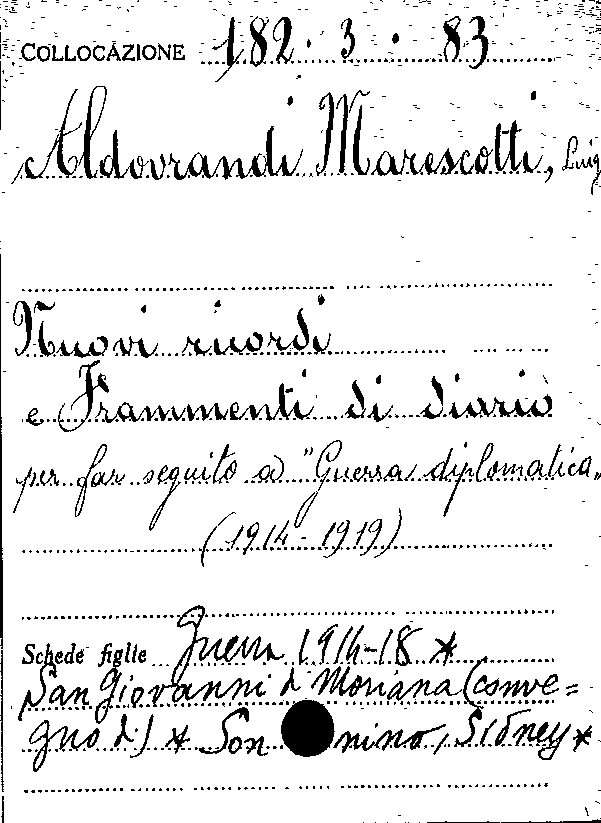 COLLOCAZIONE 182. 3. 83
Aldovrandi Marescotti, Luig
Nuovi ricordi
e Frammenti di diario
per far seguito a "Guerra diplomatica"
(1914-1919)
Schede figlie Guerra 1914-18 *
San Giovanni d Moriana (conve=
gno di) * Son nino, Sidney *